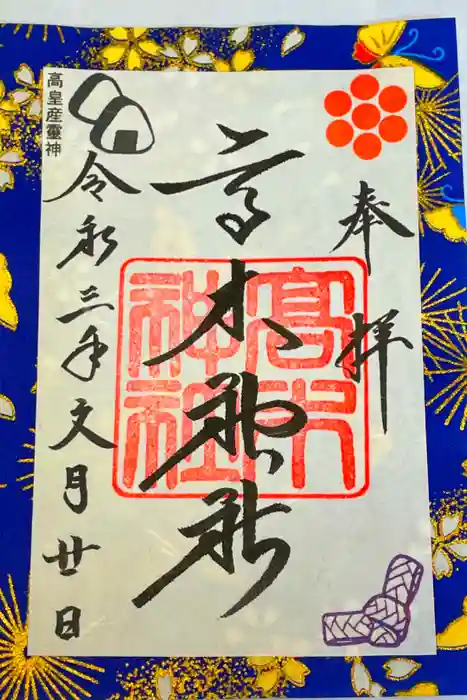 奉拝
高木神社
高木神社
令和三年文月廿日
高皇産霊神